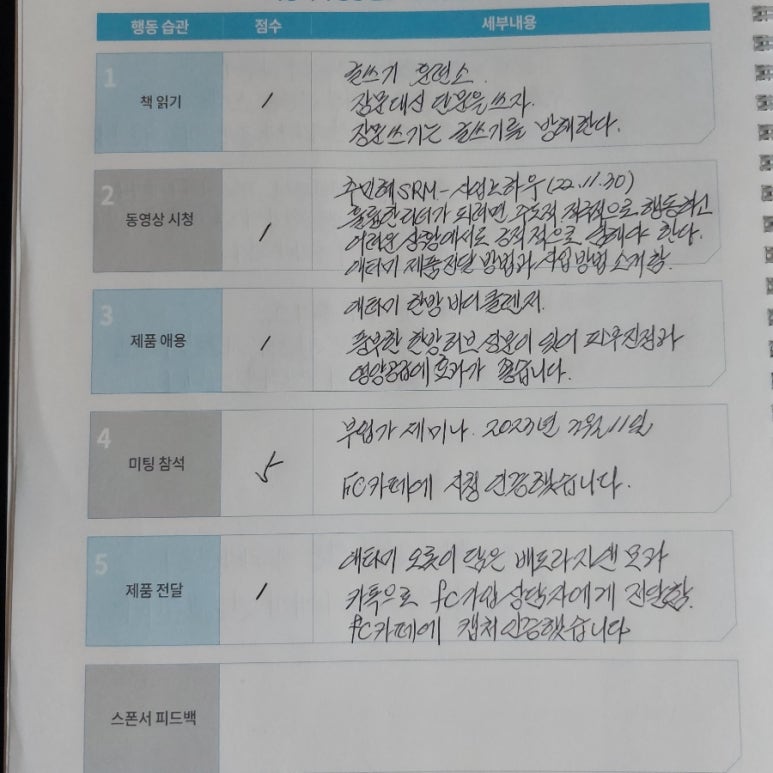 행동 습관 점수 세부내용
1
책 읽기
1
글쓰기 훈련소.
장문대신 단문을 쓰자.
장문쓰기는 글쓰기를 방해한다.
2
동영상 시청
1
SRM - 사업노하우 (22.11.30)
훌륭한 리더가 되려면 주도적, 적극적으로 행동하고
어려운 상황에서도 긍정적으로 말해야 한다.
애터미 제품전달 방법과 사업방법 소개함.
3
제품 애용
1
애터미 한방 바디클렌저.
풍부한 한방허브 성분이 있어 피부진정과
영양공급에 효과가 좋습니다.
4
미팅 참석
5
부업가 세미나. 2023년 2월 11일
FC카페에 시청 인증했습니다.
5
제품 전달
1
애터미 오롯이 담은 배도라지생모과
카톡으로 FC가입 상담자에게 전달함.
FC카페에 캡처인증했습니다
스폰서 피드백